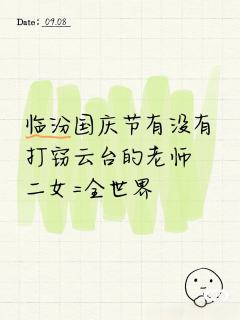 Date: 09.08
临汾国庆节有没有
打窃云台的老师
二女=全世界